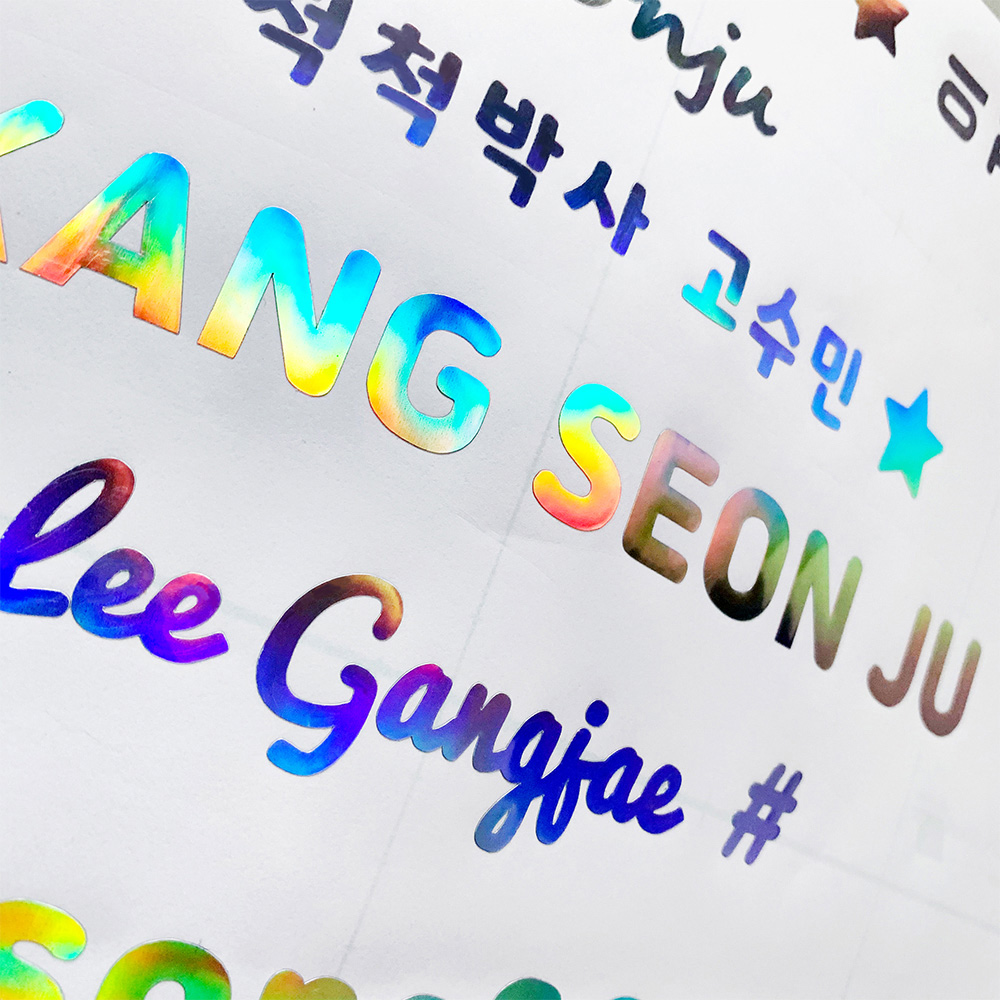 척척박사 고수민
KANG SEON JU
Lee Gangjae #